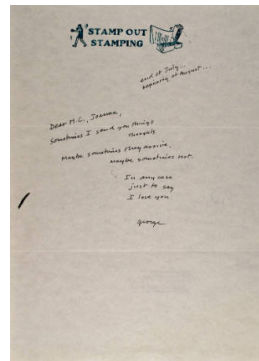 STAMP OUT
STAMPING
end of July...
beginning of August...
Dear M.C., Joanna,
Sometimes I send you things
through
Maybe sometimes they arrive.
Maybe sometimes not.
In any case
just to say
I love you
George